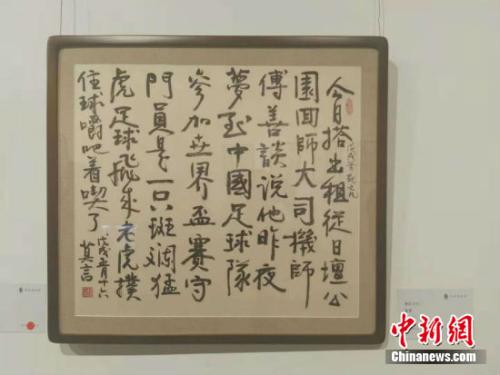 今日搭出租從日壇公
園回師大司機師
傅善談說他昨夜
夢到中國足球隊
參加世界盃賽守
門員是一只斑斕猛
虎足球飛來老虎撲
住球嚼吧着喫了
戊戌五月十六
莫言
中新网
Chinanews.com